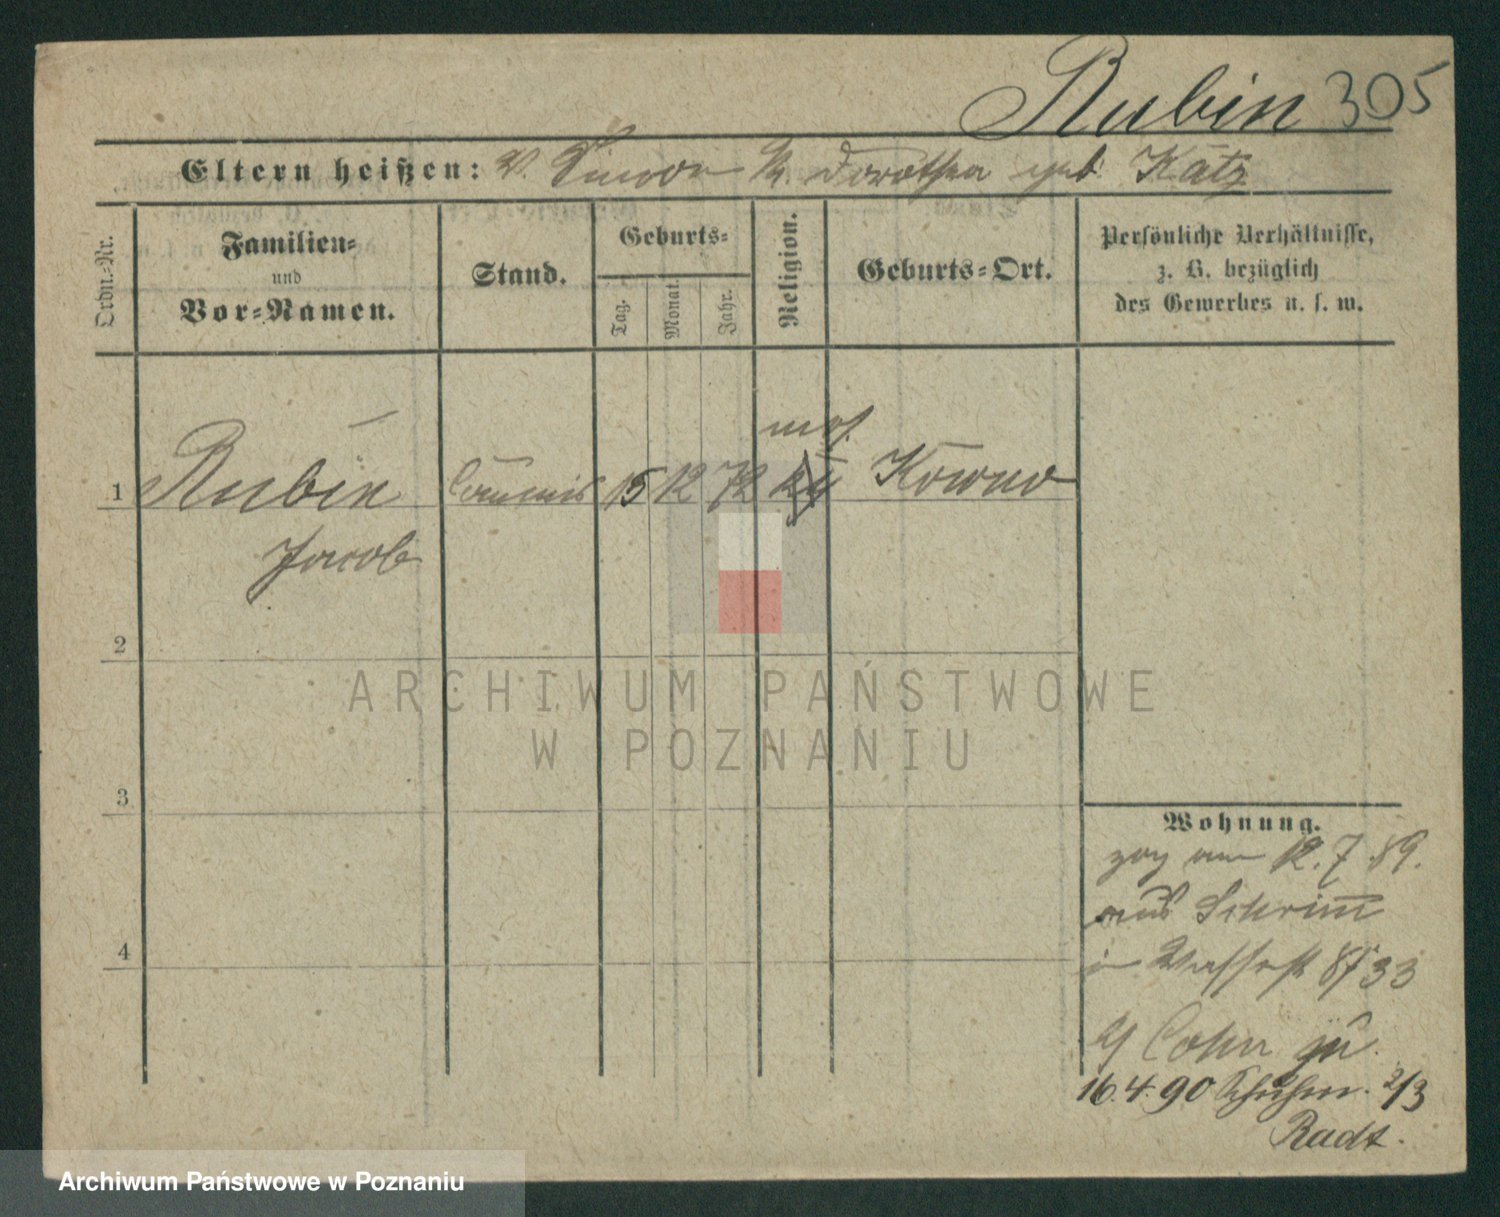 Rubin 305
Eltern heißen: V. Simon M. Dorothea geb. Katz
Ordn.-Nr.
Familien-
und
Vor-Namen.
Stand.
Geburts-
Tag.
Monat.
Jahr.
Religion.
Geburts-Ort.
Persönliche Verhältnisse,
z. B. bezüglich
des Gewerbes u. s. w.
mos.
1 Rubin Commis 15 12 72 Kowno
Jacob
2
3
4
Wohnung.
zog am 12.7.89.
aus Schrimm
in Wasserst 8/33
Cohn
16.4.90 Schuhm. 2/3
Radt.
ARCHIWUM PAŃSTWOWE
W POZNANIU
Archiwum Państwowe w Poznaniu